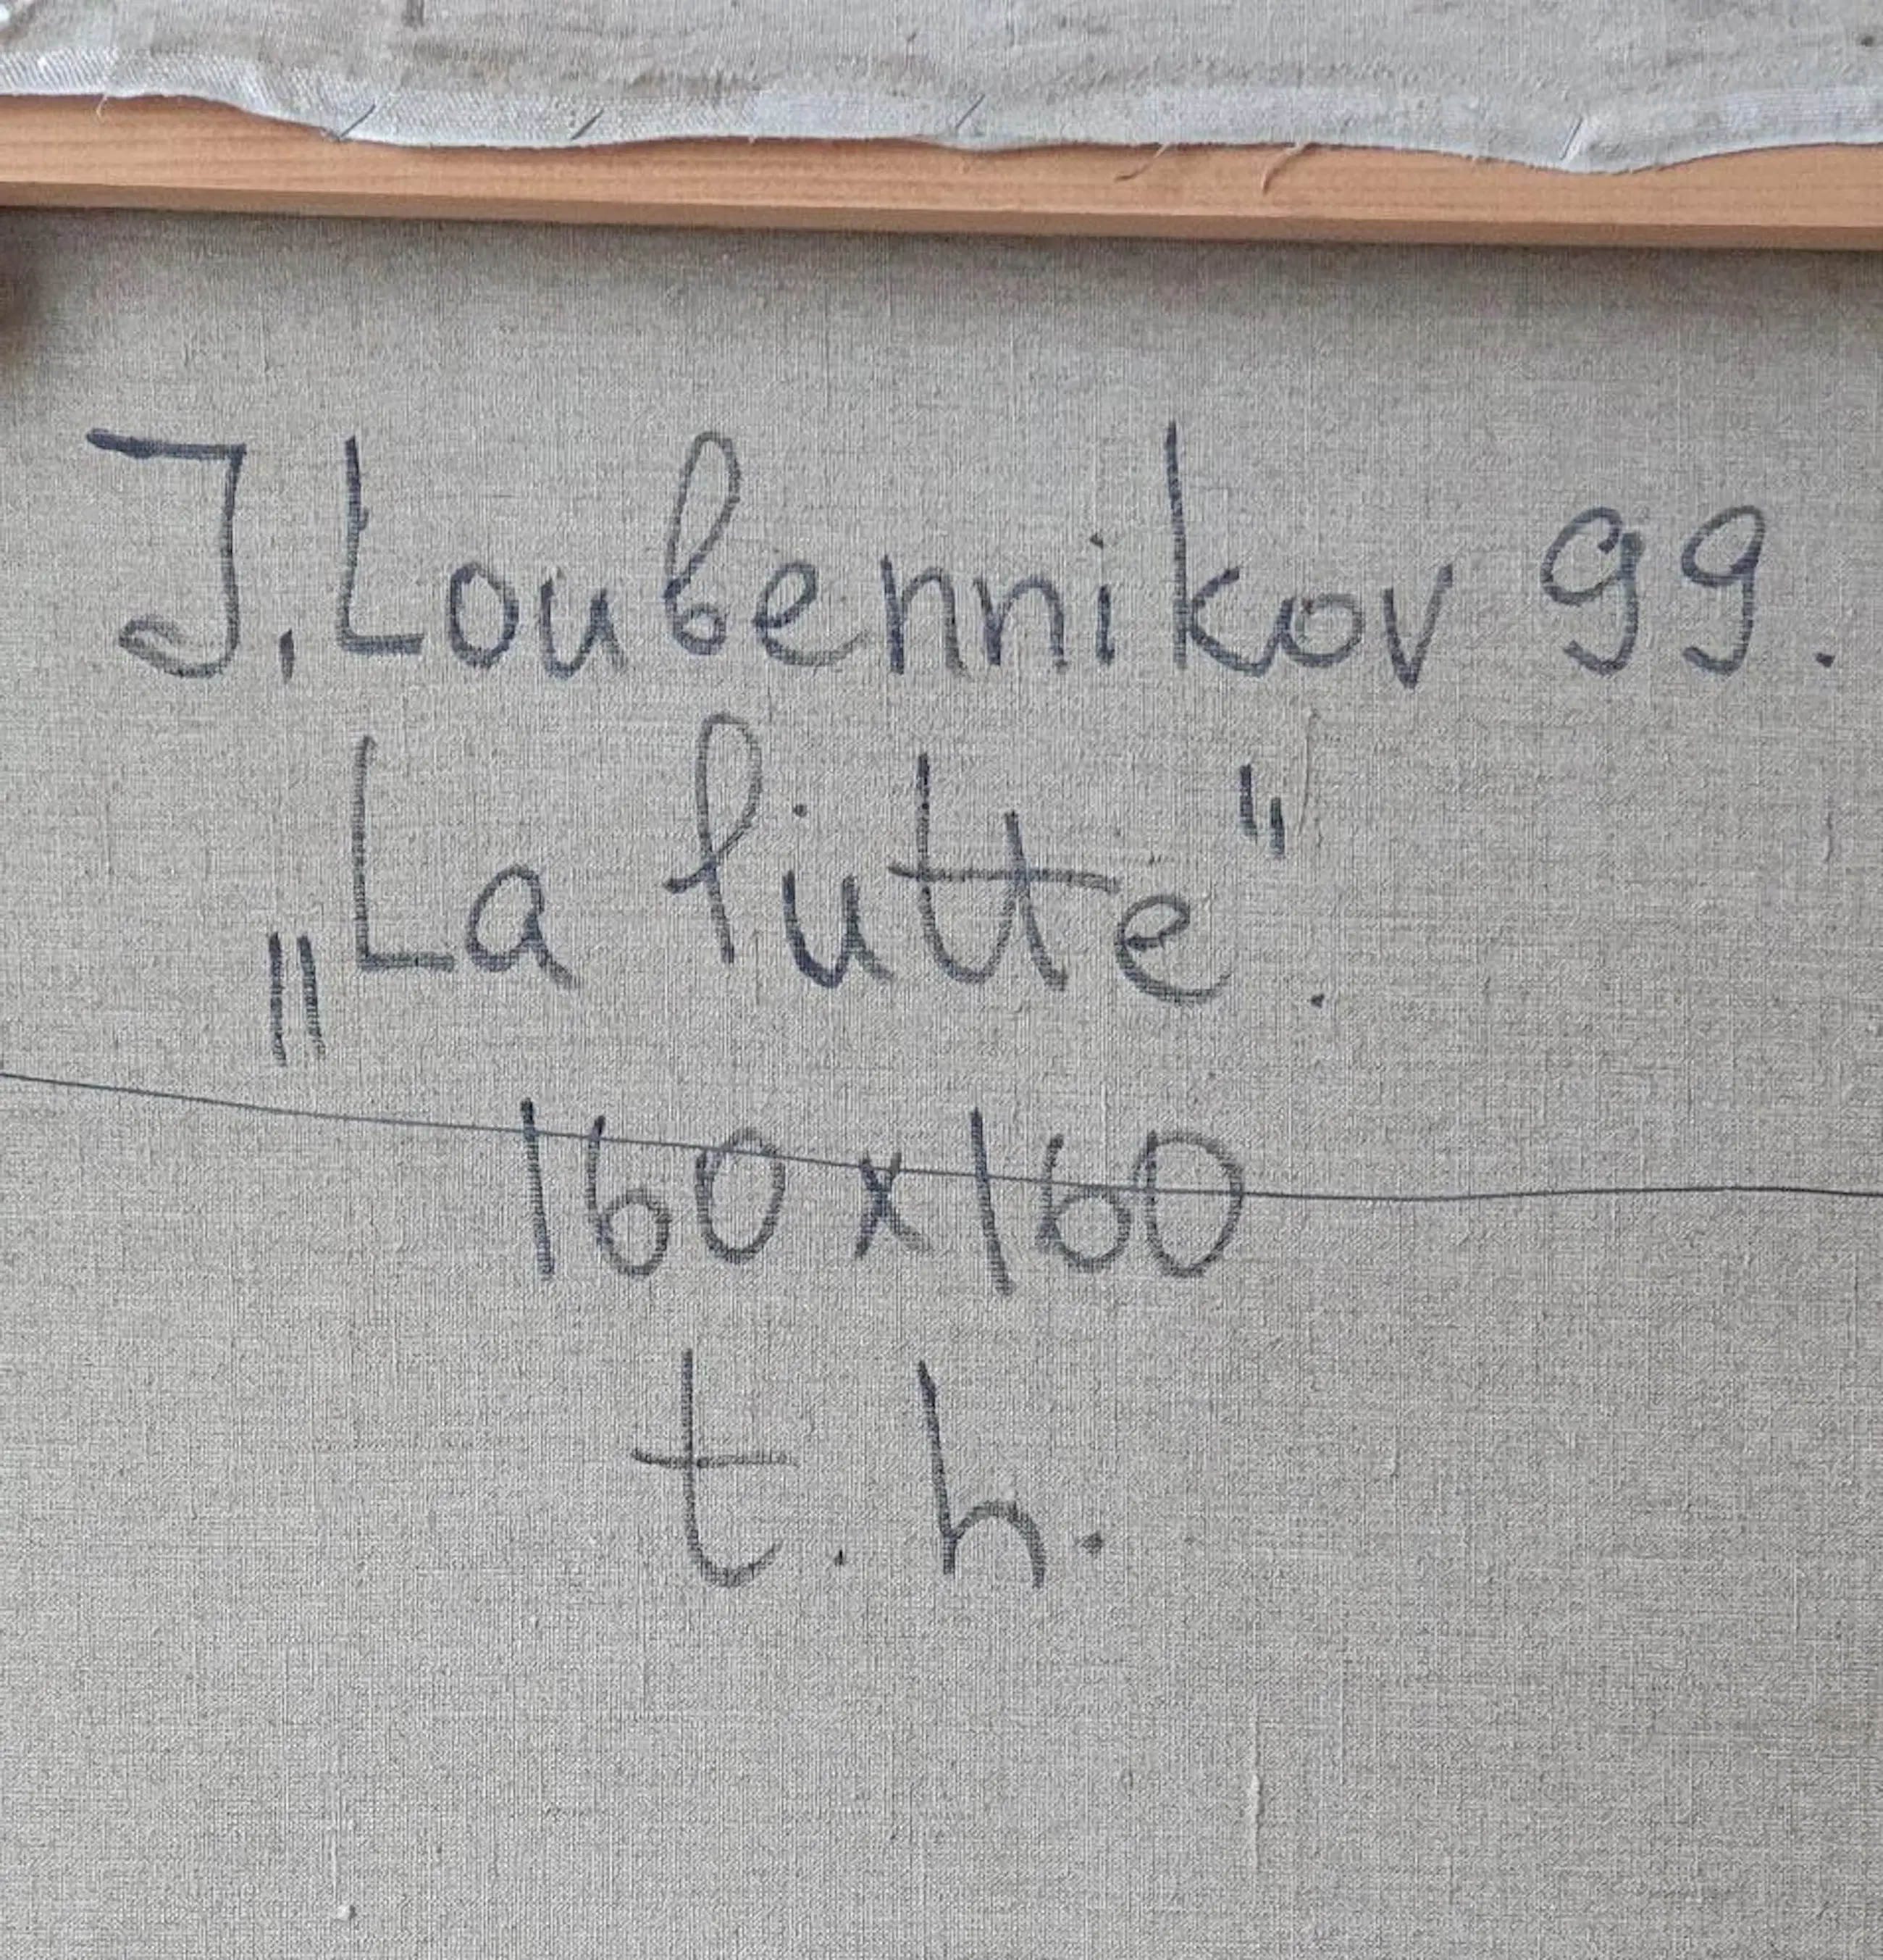 J. Loubennikov 99.
„La lutte".
160x160
t. h.